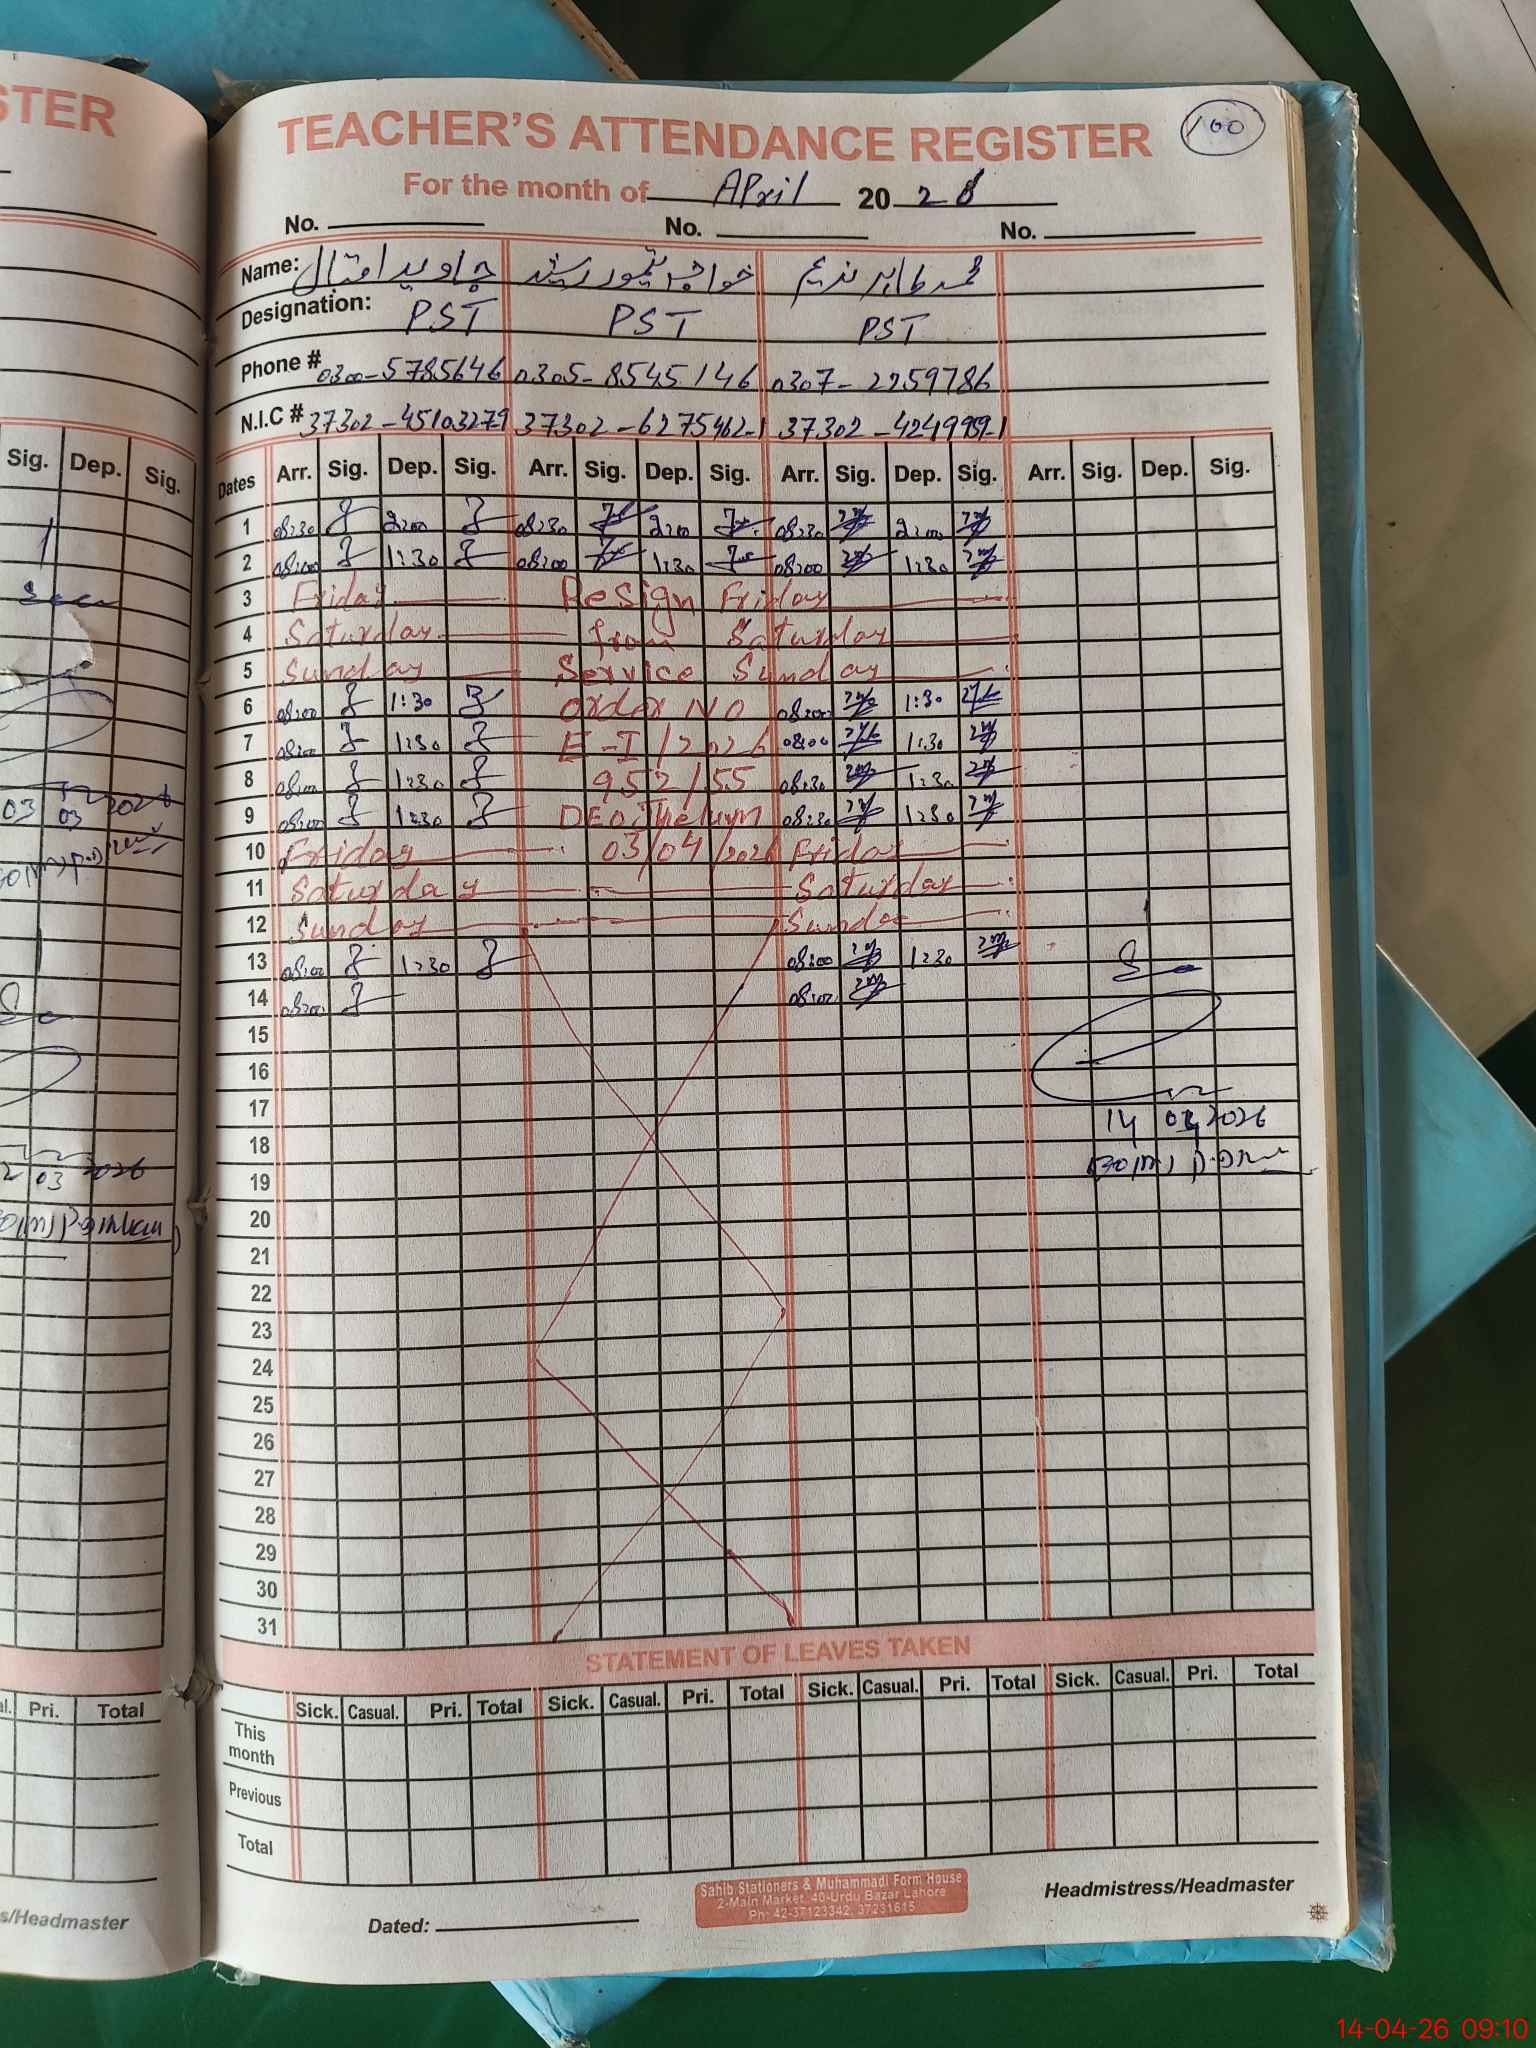 STER
TEACHER'S ATTENDANCE REGISTER
100
For the month of April 20 26
No. No. No.
Name: جاوید اقبال خواجہ تیمور رشید محمد طاہر ندیم
Designation: PST PST PST
Phone # 0300-5785646 0305-8545146 0307-2259786
N.I.C # 37302-4510327-9 37302-6275462-1 37302-4249959-1
Sig. Dep. Sig.
Dates Arr. Sig. Dep. Sig. Arr. Sig. Dep. Sig. Arr. Sig. Dep. Sig. Arr. Sig. Dep. Sig.
1 08:30 2:00 08:30 2:00 08:30 2:00
2 08:00 1:30 08:00 1:30 08:00 1:30
3 Friday Resign Friday
4 Saturday from Saturday
5 Sunday Service Sunday
6 08:00 1:30 order NO 08:00 1:30
7 08:00 1:30 E-I/2026 08:00 1:30
8 08:00 1:30 952/55 08:30 1:30
9 08:00 1:30 DEO Jhelum 08:30 1:30
10 Friday 03/04/2026 Friday
11 Saturday Saturday
12 Sunday Sunday
13 08:00 1:30 08:00 1:30
14 08:00 08:00
15
16
17
14 04 2026
18
19
20
21
22
23
24
25
26
27
28
29
30
31
03 03 2026
03 2026
STATEMENT OF LEAVES TAKEN
Pri. Total
Sick. Casual. Pri. Total Sick. Casual. Pri. Total Sick. Casual. Pri. Total Sick. Casual. Pri. Total
This
month
Previous
Total
s/Headmaster
Dated:
Sahib Stationers & Muhammadi Form House
2-Main Market, 40-Urdu Bazar Lahore
Ph: 42-37123342, 37231615
Headmistress/Headmaster
14-04-26 09:10